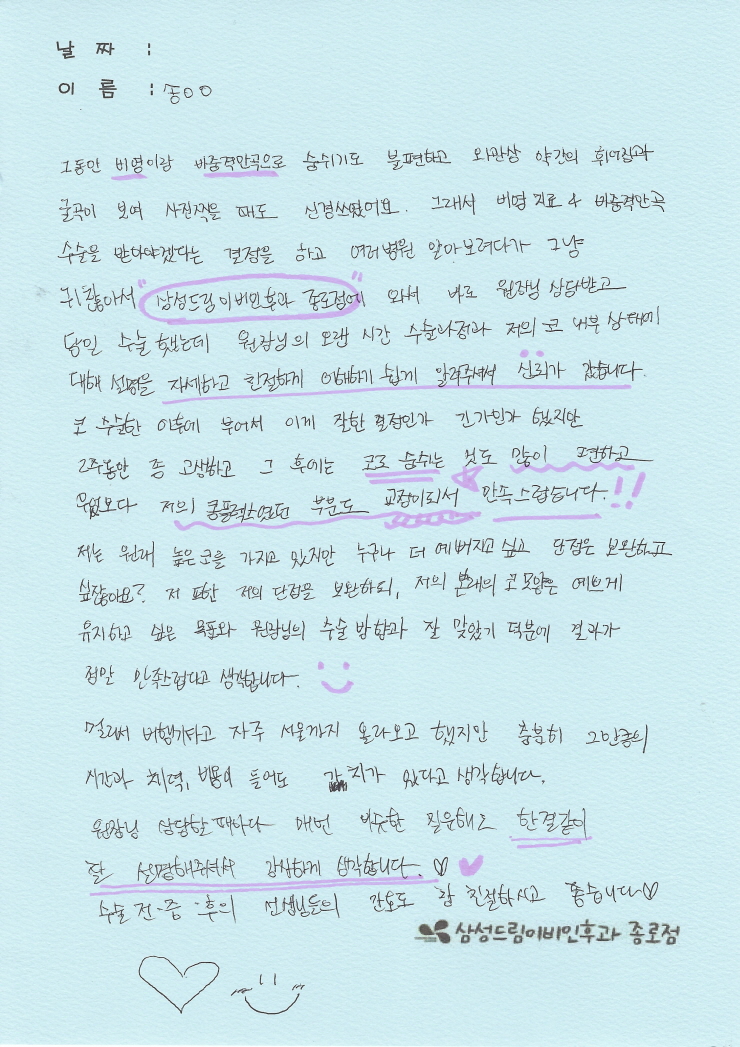 날 짜 :
이 름 : 송○○
그동안 비염이랑 비중격만곡으로 숨쉬기도 불편하고 외관상 약간의 휘어짐과
굴곡이 보여 사진찍을 때도 신경쓰였어요. 그래서 비염 치료 & 비중격만곡
수술을 받아야겠다는 결정을 하고 여러병원 알아보려다가 그냥
귀찮아서 "삼성드림이비인후과 종로점"에 와서 바로 원장님 상담받고
당일 수술했는데 원장님의 오랜 시간 수술과정과 저의 코 내부 상태에
대해 설명을 자세하고 친절하게 이해하기 쉽게 알려주셔서 신뢰가 갔습니다.
코 수술한 이후에 부어서 이게 잘한 결정인가 긴가민가 했지만
2주동안 좀 고생하고 그 후에는 코로 숨쉬는 것도 많이 편하고
무엇보다 저의 콤플렉스였던 부분도 교정이되서 만족스럽습니다.!!
저는 원래 높은코를 가지고 있지만 누구나 더 예뻐지고 싶고 단점은 보완하고
싶잖아요? 저 또한 저의 단점을 보완하되, 저의 본래의 코모양은 예쁘게
유지하고 싶은 목표와 원장님의 수술 방향과 잘 맞았기 덕분에 결과가
정말 만족스럽다고 생각합니다.
멀리서 비행기타고 자주 서울까지 올라오고 했지만 충분히 그만큼의
시간과 체력, 비용이 들어도 가치가 있다고 생각합니다.
원장님 상담할 때마다 매번 비슷한 질문해도 한결같이
잘 설명해주셔서 감사하게 생각합니다. ♡ ♥
수술 전·중·후의 선생님들의 간호도 참 친절하시고 좋습니다♡
삼성드림이비인후과 종로점